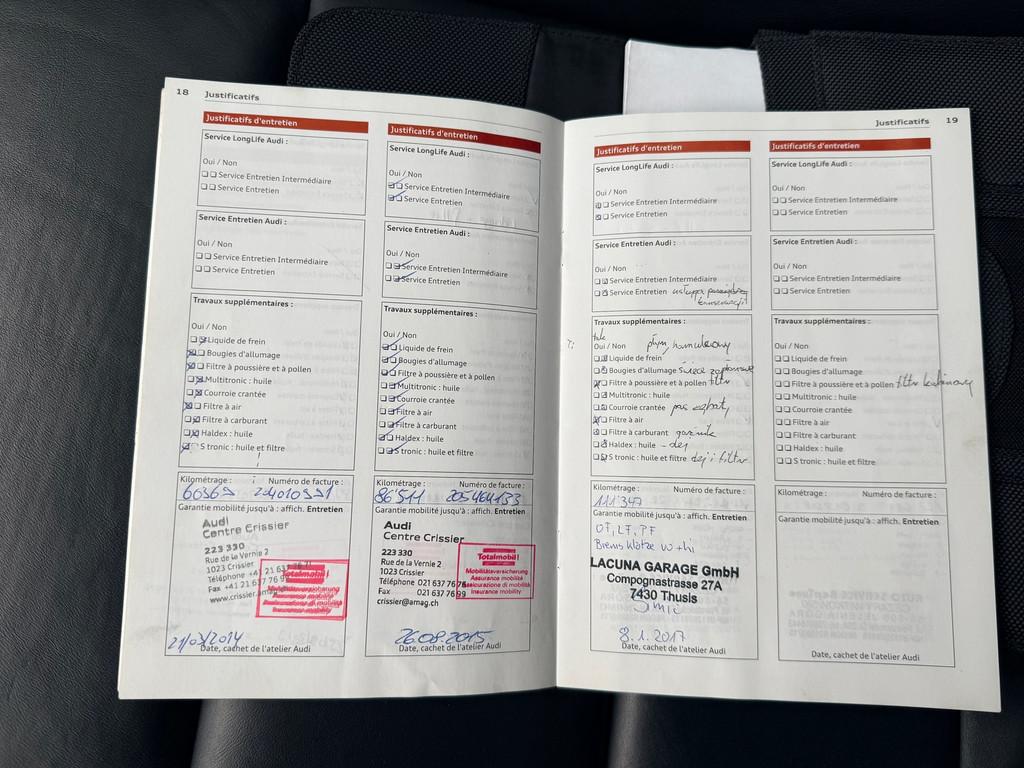 18 Justificatifs
Justificatifs d'entretien
Service LongLife Audi :
Oui / Non
Service Entretien Intermédiaire
Service Entretien
Service Entretien Audi :
Oui / Non
Service Entretien Intermédiaire
Service Entretien
Travaux supplémentaires :
Oui / Non
Liquide de frein
Bougies d'allumage
Filtre à poussière et à pollen
Multitronic : huile
Courroie crantée
Filtre à air
Filtre à carburant
Haldex : huile
S tronic : huile et filtre
Kilométrage : Numéro de facture :
Garantie mobilité jusqu'à : affich. Entretien
Audi
Centre Crissier
223 330
Rue de la Vernie 2
1023 Crissier
Téléphone +41 21 637
Fax +41 21 637 76 99
Totalmobil!
Mobilitätsversicherung
Assurance mobilité
Assicurazione di mobilità
Insurance mobility
21/03/2014
Date, cachet de l'atelier Audi
Justificatifs d'entretien
Service LongLife Audi :
Oui / Non
Service Entretien Intermédiaire
Service Entretien
Service Entretien Audi :
Oui / Non
Service Entretien Intermédiaire
Service Entretien
Travaux supplémentaires :
Oui / Non
Liquide de frein
Bougies d'allumage
Filtre à poussière et à pollen
Multitronic : huile
Courroie crantée
Filtre à air
Filtre à carburant
Haldex : huile
S tronic : huile et filtre
Kilométrage : Numéro de facture :
86'511 205464133
Garantie mobilité jusqu'à : affich. Entretien
Audi
Centre Crissier
223 330
Rue de la Vernie 2
1023 Crissier
Téléphone 021 637 76
Fax 021 637 76 99
crissier@amag.ch
Totalmobil!
Mobilitätsversicherung
Assurance mobilité
Assicurazione di mobilità
Insurance mobility
26.08.2015
Date, cachet de l'atelier Audi
Justificatifs 19
Justificatifs d'entretien
Service LongLife Audi :
Oui / Non
Service Entretien Intermédiaire
Service Entretien
Service Entretien Audi :
Oui / Non
Service Entretien Intermédiaire
Service Entretien
Travaux supplémentaires :
Oui / Non płyn hamulcowy
Liquide de frein
Bougies d'allumage świece zapłonowe
Filtre à poussière et à pollen filtr
Multitronic : huile
Courroie crantée pas
Filtre à air
Filtre à carburant
Haldex : huile
S tronic : huile et filtre olej i filtr
Kilométrage : Numéro de facture :
111'347
Garantie mobilité jusqu'à : affich. Entretien
LACUNA GARAGE GmbH
Compognastrasse 27A
7430 Thusis
8.1.2017
Date, cachet de l'atelier Audi
Justificatifs d'entretien
Service LongLife Audi :
Oui / Non
Service Entretien Intermédiaire
Service Entretien
Service Entretien Audi :
Oui / Non
Service Entretien Intermédiaire
Service Entretien
Travaux supplémentaires :
Oui / Non
Liquide de frein
Bougies d'allumage
Filtre à poussière et à pollen filtr kabinowy
Multitronic : huile
Courroie crantée
Filtre à air
Filtre à carburant
Haldex : huile
S tronic : huile et filtre
Kilométrage : Numéro de facture :
Garantie mobilité jusqu'à : affich. Entretien
Date, cachet de l'atelier Audi